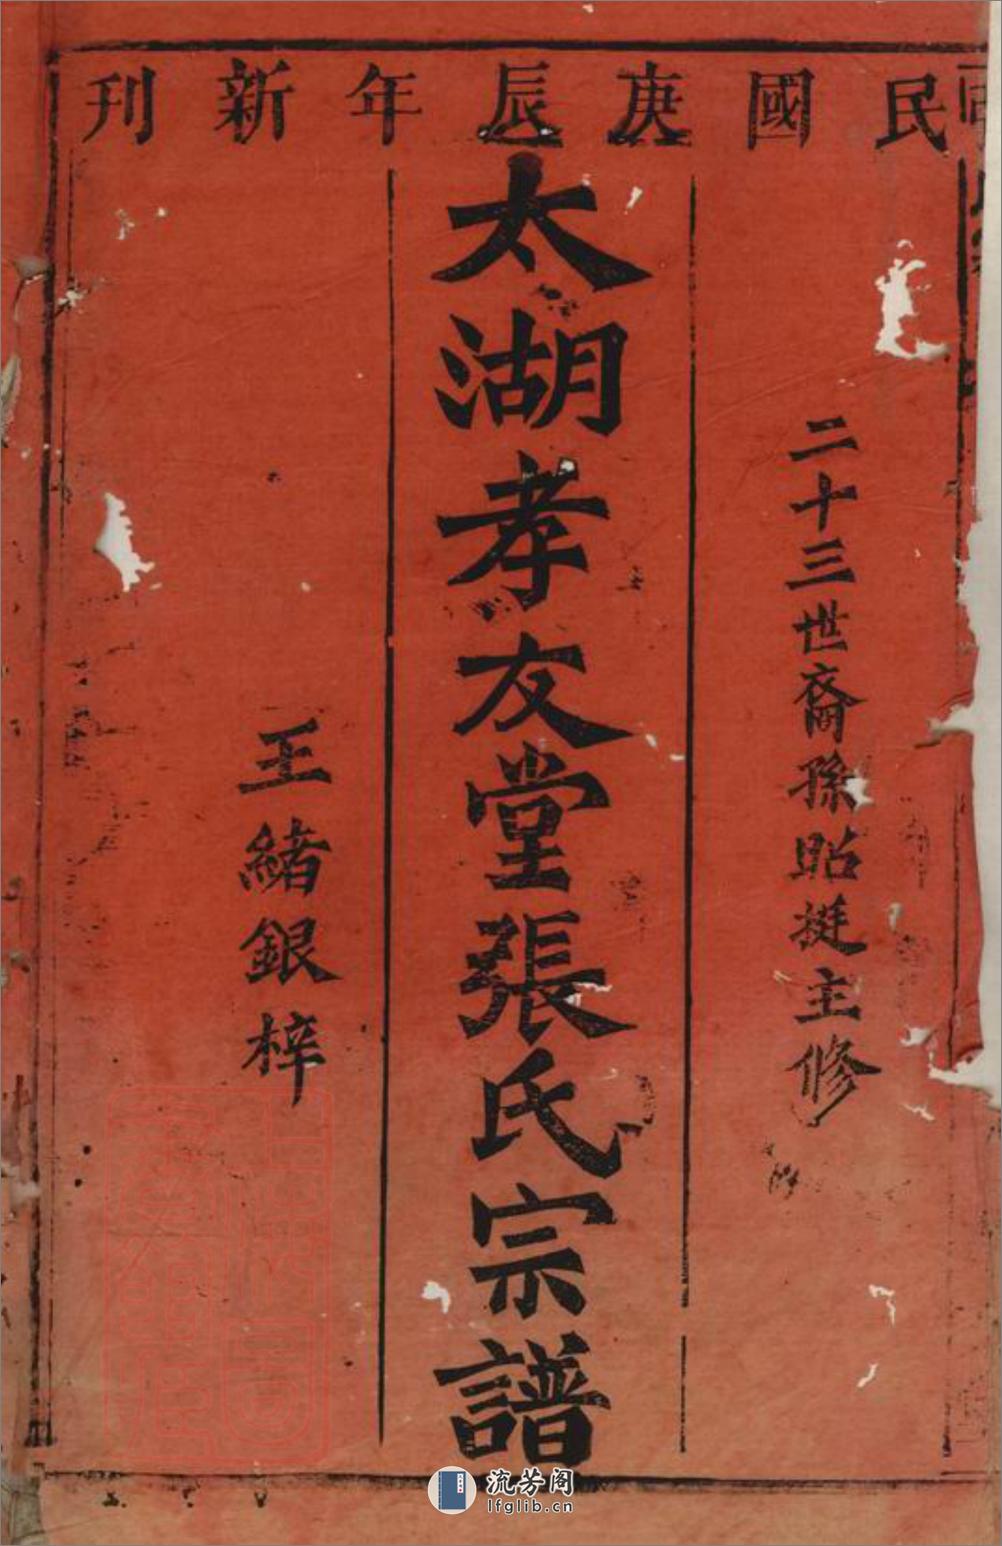 民國庚辰年新刊
二十三世裔孫貽挺主修
太湖孝友堂張氏宗譜
王緒銀梓
流芳阁
lfglib.cn